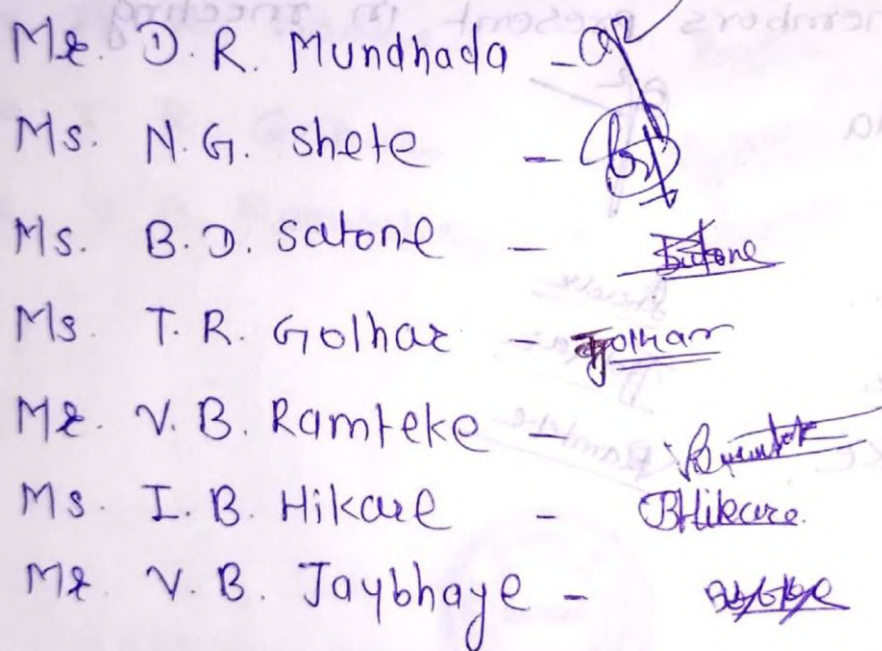 Mr. D. R. Mundhada -
Ms. N. G. Shete -
Ms. B. D. Satone -
Ms. T. R. Golhar - Golhar
Mr. V. B. Ramteke -
Ms. I. B. Hikare - BHikare
Mr. V. B. Jaybhaye -